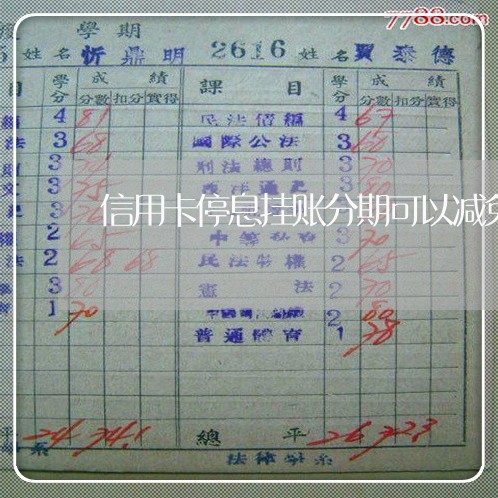 7788.com
學期
姓名 忻鼎明 2616 姓名 賈泰德
目 學分 成績 課目 學分 成績
分數 扣分 實得 分數 扣分 實得
4 81 民法債編 4 67
法 3 68 國際公法 3 60
3 刑法總則 3 70
文 3 75 3 80
信用卡停息挂账分期可以减免
2 65 3 70
法 2 68 68 民法物權 2 65
3 80 憲法 2 70
1 70 2 80
普通體育 1 78
平 24 74.1 總平 26 72.3
系 法律學系